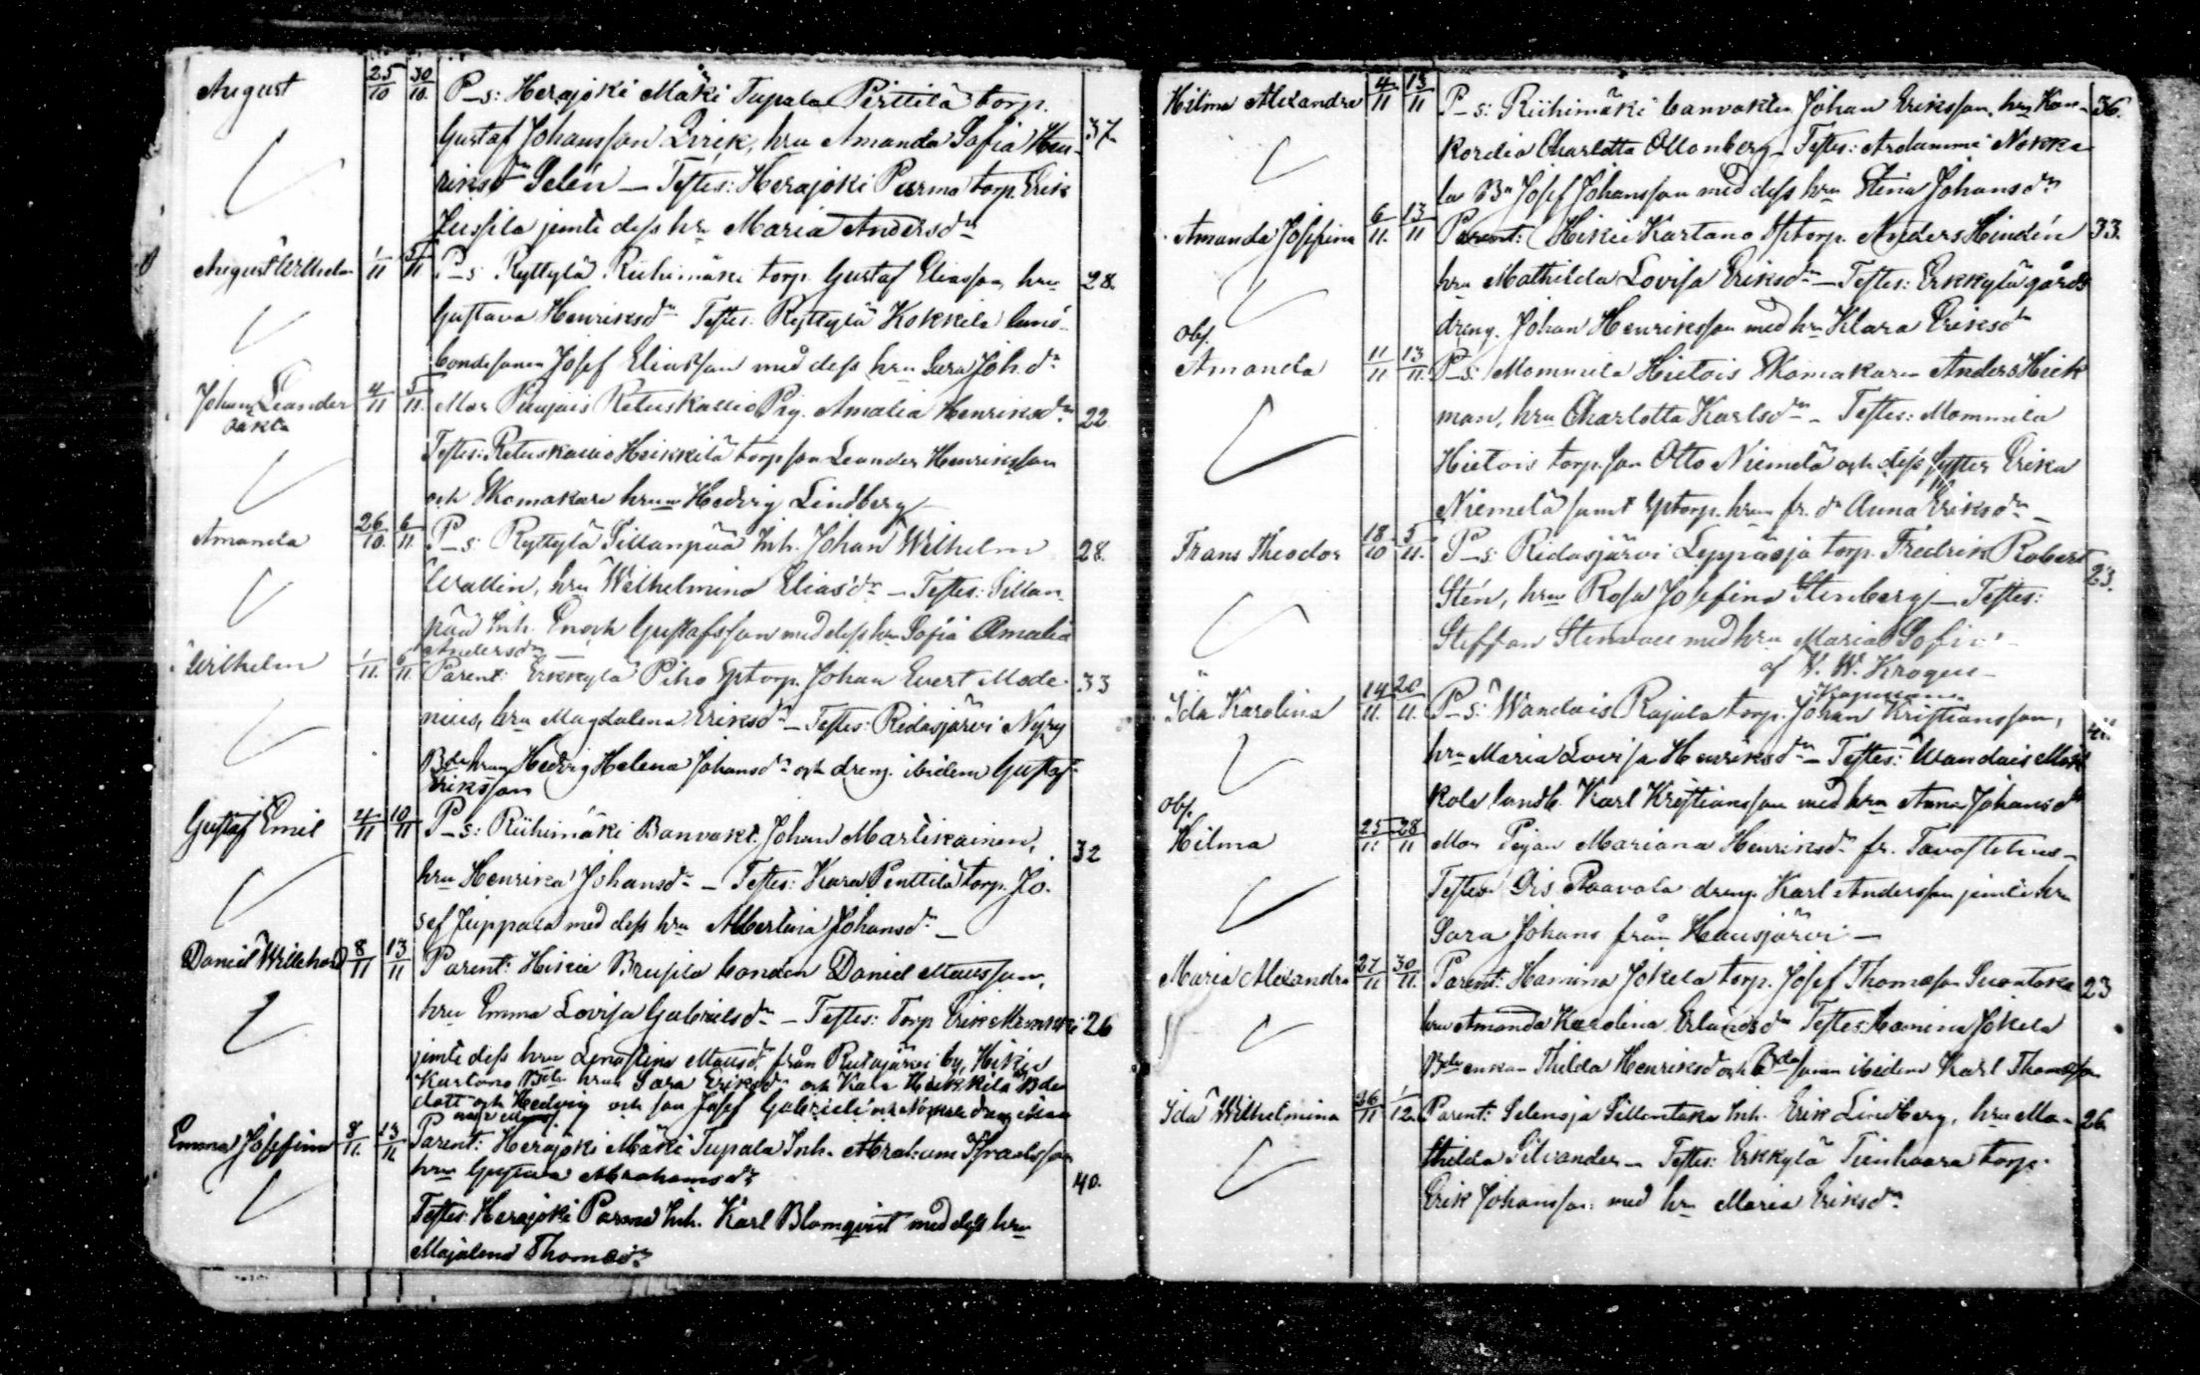 August 25/10 30/10 P_s: Herajoki Mäki Tupala Perttilä torp.
Gustaf Johansson Qvick, hru Amanda Sofia Hen- 37
riksdr Selén — Testes: Herajoki Purma torp. Erik
Jussila jemte dess hru Maria Andersdr
August Wilhelm 1/11 5/11 P_s: Ryttylä Riihimäki torp. Gustaf Eliasson, hru 28.
Gustava Henriksdr Testes: Ryttylä Kokkila land-
bondesonen Josef Eliasson med dess hru Sara Joh.dr
Johan Leander 4/11 5/11 Mor Retuskallio Pig. Amalia Henriksdr 22
oäkta
Testes: Retuskallio Heikkilä torp. son Leander Henriksson
och Skomakare hrun Hedvig Lindberg
Amanda 26/10 6/11 P_s: Ryttylä Sillanpää Inh. Johan Wilhelm 28.
Wallin, hru Wilhelmina Eliasdr — Testes: Sillan-
pää Inh. Enoch Gustafsson med dess hru Sofia Amalia
Andersdr
Wilhelm 1/11 6/11 Parent: Erkkylä Piho Sptorp. Johan Evert Mode- 33
nius, hru Magdalena Eriksdr — Testes: Ridasjärvi Nyry
Bde hrun Hedvig Helena Johansdr och dreng. ibidem Gustaf
Eriksson
Gustaf Emil 4/11 10/11 P_s: Riihimäki Banvakt. Johan Martikainen, 32
hru Henrika Johansdr — Testes: Kara Penttilä torp. Jo-
sef Juppala med dess hru Albertina Johansdr —
Daniel Willehard 8/11 13/11 Parent: Hikiä Brusila bonden Daniel Mattsson,
hru Emma Lovisa Gabrielsdr — Testes: Torp. Erik 26
jemte dess hru Lenastina Mattsdr från Rutajärvi by, Hikiä
Kartano Bde hrun Sara Eriksdr och Kara Heikkilä Bde
dott och Hedvig och son Josef Gabriel
Emma Josefina 8/11 13/11 Parent: Herajoki Mäki Tupala Inh. Abraham Israelsson
hru Gustava Abrahamsdr 40.
Testes: Herajoki Parma Inh. Karl Blomqvist med dess hru
Majalena Thomasdr
Hilma Alexandra 4/11 13/11 P_s: Riihimäki banvakten Johan Eriksson, hru Kon- 36.
kordia Charlotta Ollonberg — Testes: Arolammi Nokka
la Bn Josef Johansson med dess hru Stina Johansdr
Amanda Josefina 6/11 13/11 Parent: Hikiä Kartano Sptorp. Anders Hindén 33.
hru Mathilda Lovisa Eriksdr — Testes: Erkkylä gårds
dreng. Johan Henriksson med hru Klara Eriksdr
obs.
Amanda 11/11 13/11 P_s: Mommila Hietois Skomakare Anders Hick
man, hru Charlotta Karlsdr — Testes: Mommila
Hietois torp. son Otto Niemelä och dess syster Erika
Niemelä samt Sptorp. hrun fr. dr Anna Eriksdr —
Frans Theodor 18/10 5/11 P_s: Ridasjärvi Leppäoja torp. Fredrik Robert
Sten, hru Rosa Josefina Stenberg — Testes: 23.
Steffan Stenvall med hru Maria Sofia
af V. W. Krogius
Ida Karolina 14/11 20/11 P_s: Wandais Rajala torp. Johan Kristiansson,
hru Maria Lovisa Henriksdr — Testes: Wandais
kola landb. Karl Kristiansson med hru Anna Johansdr
obs.
Hilma 25/11 28/11 Mor Pigan Mariana Henriksdr fr. Tavastehus —
Testes: Ois Paavola dreng. Karl Andersson jemte hru
Sara Johans från Hausjärvi —
Maria Alexandra 27/11 30/11 Parent: Hamina Jokela torp. Josef Thomasson Suontaka 23
hru Amanda Karolina Erlandsdr Testes: Hamina Jokela
Bde enkan Thilda Henriksd och Bdesonen ibidem Karl Thomasson
Ida Wilhelmina 26/11 1/12 Parent: Selensja Sillantaka Inh. Erik Lindberg, hru Ma- 26.
thilda Silvander — Testes: Erkkylä Tienhaara torp.
Erik Johansson med hru Maria Eriksdr